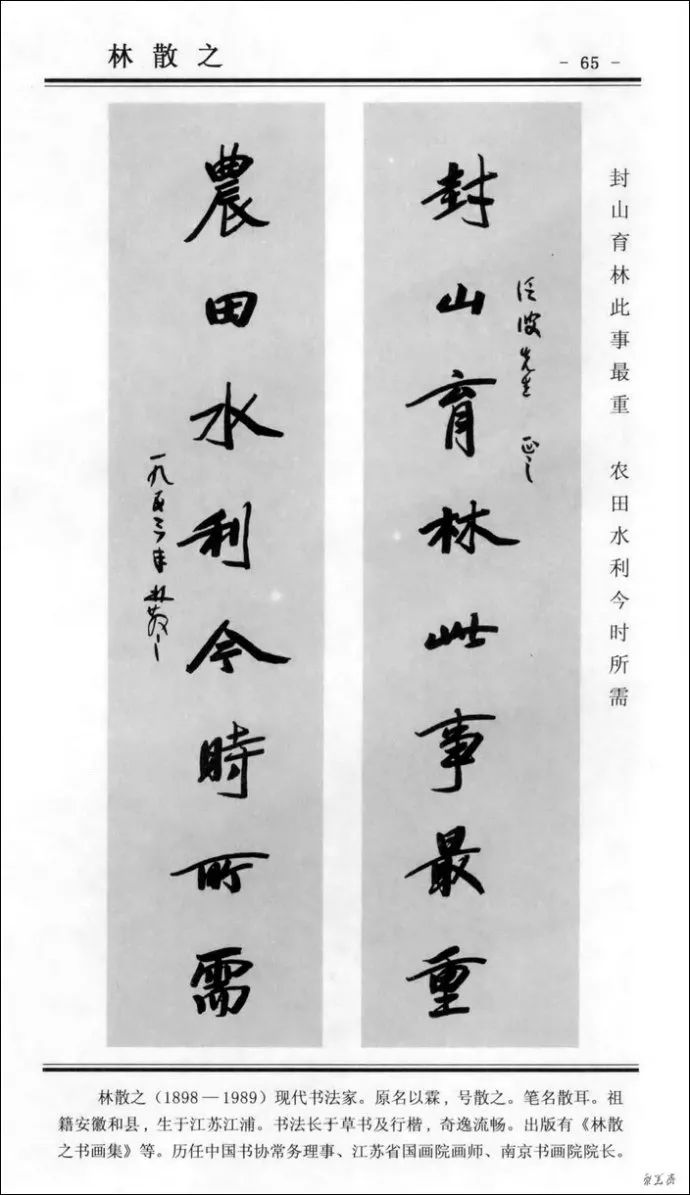 林散之
- 65 -
封山育林此事最重 农田水利今时所需
封山育林此事最重
先生 正之
農田水利今時所需
一九五三年 林散之
林散之（1898—1989）现代书法家。原名以霖，号散之。笔名散耳。祖
籍安徽和县，生于江苏江浦。书法长于草书及行楷，奇逸流畅。出版有《林散
之书画集》等。历任中国书协常务理事、江苏省国画院画师、南京书画院院长。